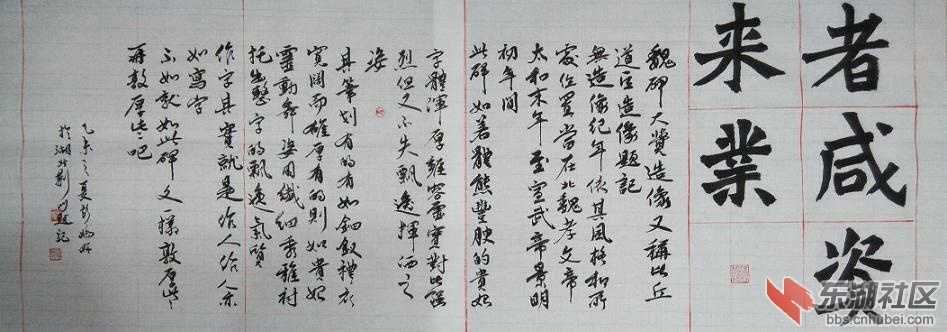 者咸资
来業
魏碑大赞造像又稱比丘
道匠造像题記
無造像纪年依其風格和所
處位置當在北魏孝文帝
太和末年至宣武帝景明
初年間
此碑如著體態豐腴的貴妃
字體渾厚雍容靈寶對比强
烈但又不失飘逸揮洒之
姿
其筆划有的有如鈿釵禮衣
寬阔而雄厚有的則如貴妃
靈動舞姿用纖细秀雅衬
托出整字的飘逸氣質
作字其實就是作人给人亦
如寫字
不如就如此碑文樣敦厚些
再敦厚些吧
乙未之夏
於湖北荆门题記
东湖社区
bbs.cnhubei.com